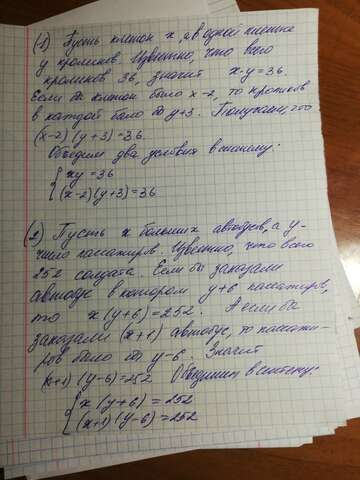 (1) Пусть клеток x а в одной клетке
y кроликов. Известно, что всего
кроликов 36, значит x·y=36.
Если бы клеток было x-2, то кроликов
в каждой было бы y+3. Получаем, что
(x-2)(y+3)=36.
Объедем два условия в систему:
{ xy=36
(x-2)(y+3)=36
(2) Пусть x больших автобусов, а y-
число пассажиров. Известно, что всего
252 солдата. Если бы заказали
автобус в котором y+6 пассажиров,
то x(y+6)=252. А если бы
заказали (x+1) автобус, то пассажи-
ров было бы y-6. Значит
(x+1)(y-6)=252 Объединим в систему:
{ x(y+6)=252
(x+1)(y-6)=252